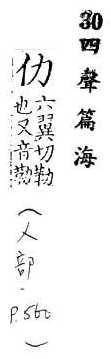 30四聲篇海
仂 六翼切勒
也又音勒
(人部.
P.560)